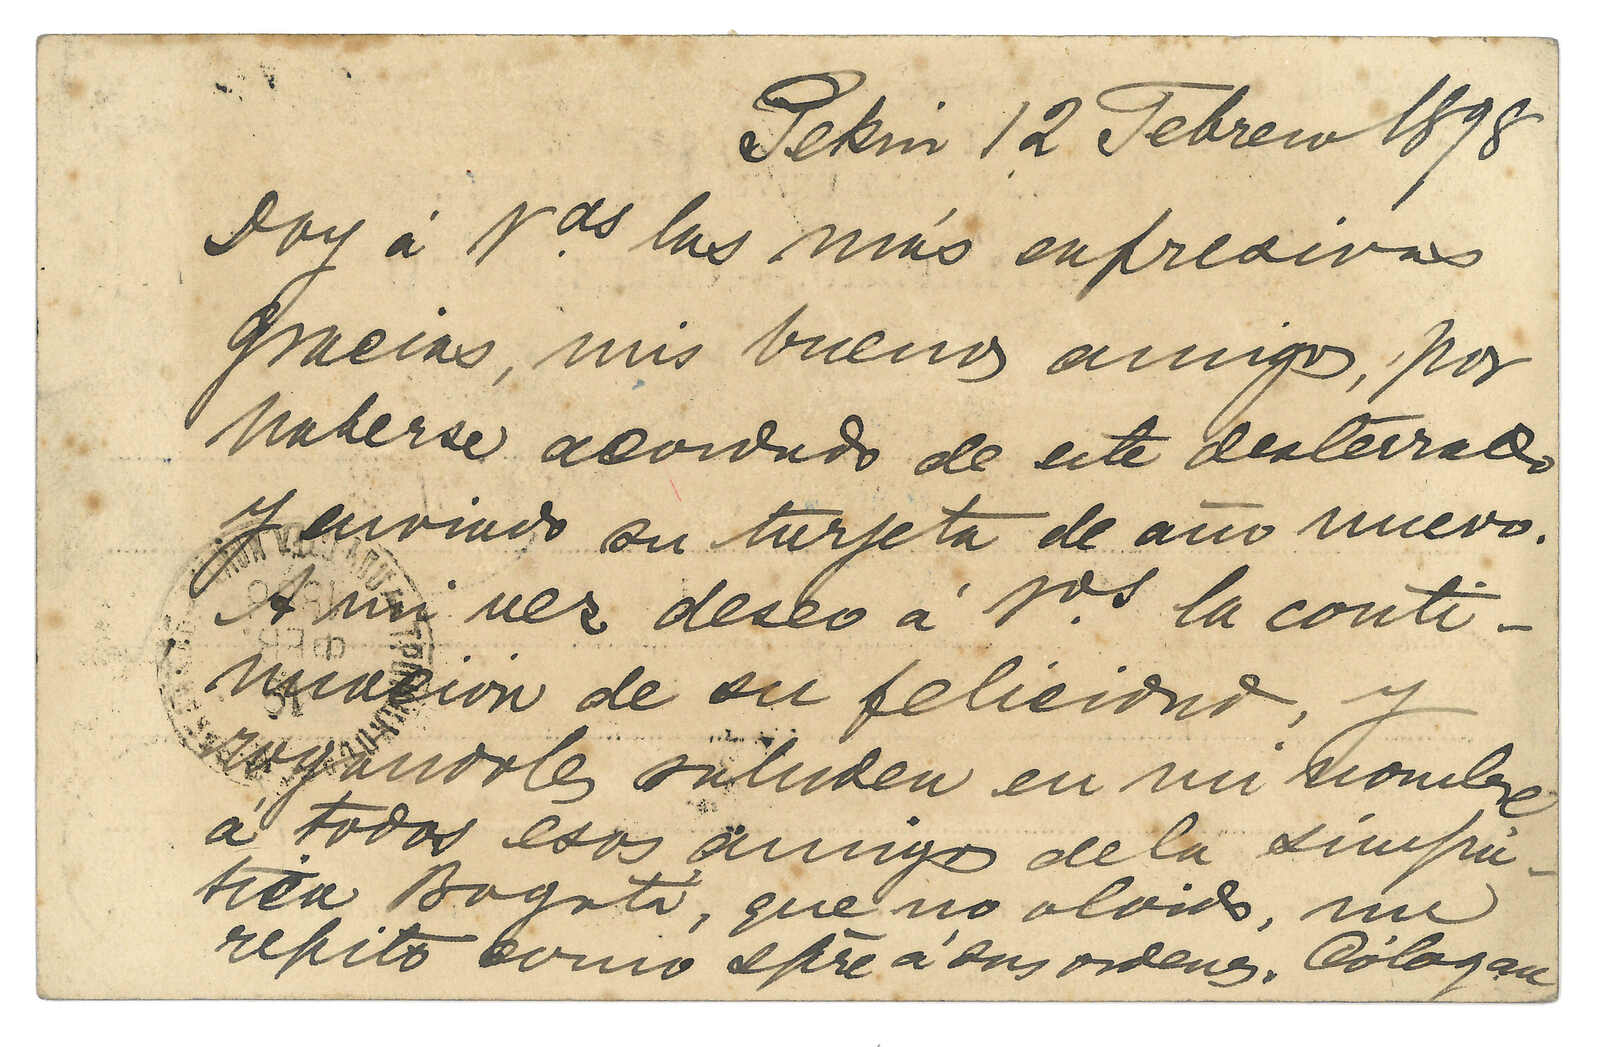 Pekin 12 Febrero 1898
Doy á V.das las más expresivas
gracias, mis buenos amigos, por
haberse acordado de este desterrado
y enviado su tarjeta de año nuevo.
A mi vez deseo á V.ds la conti-
nuación de su felicidad, y
rogandoles saluden en mi nombre
á todos esos amigos de la simpá-
tica Bogotá, que no olvido, me
repito como spre á sus ordenes. Cólogan